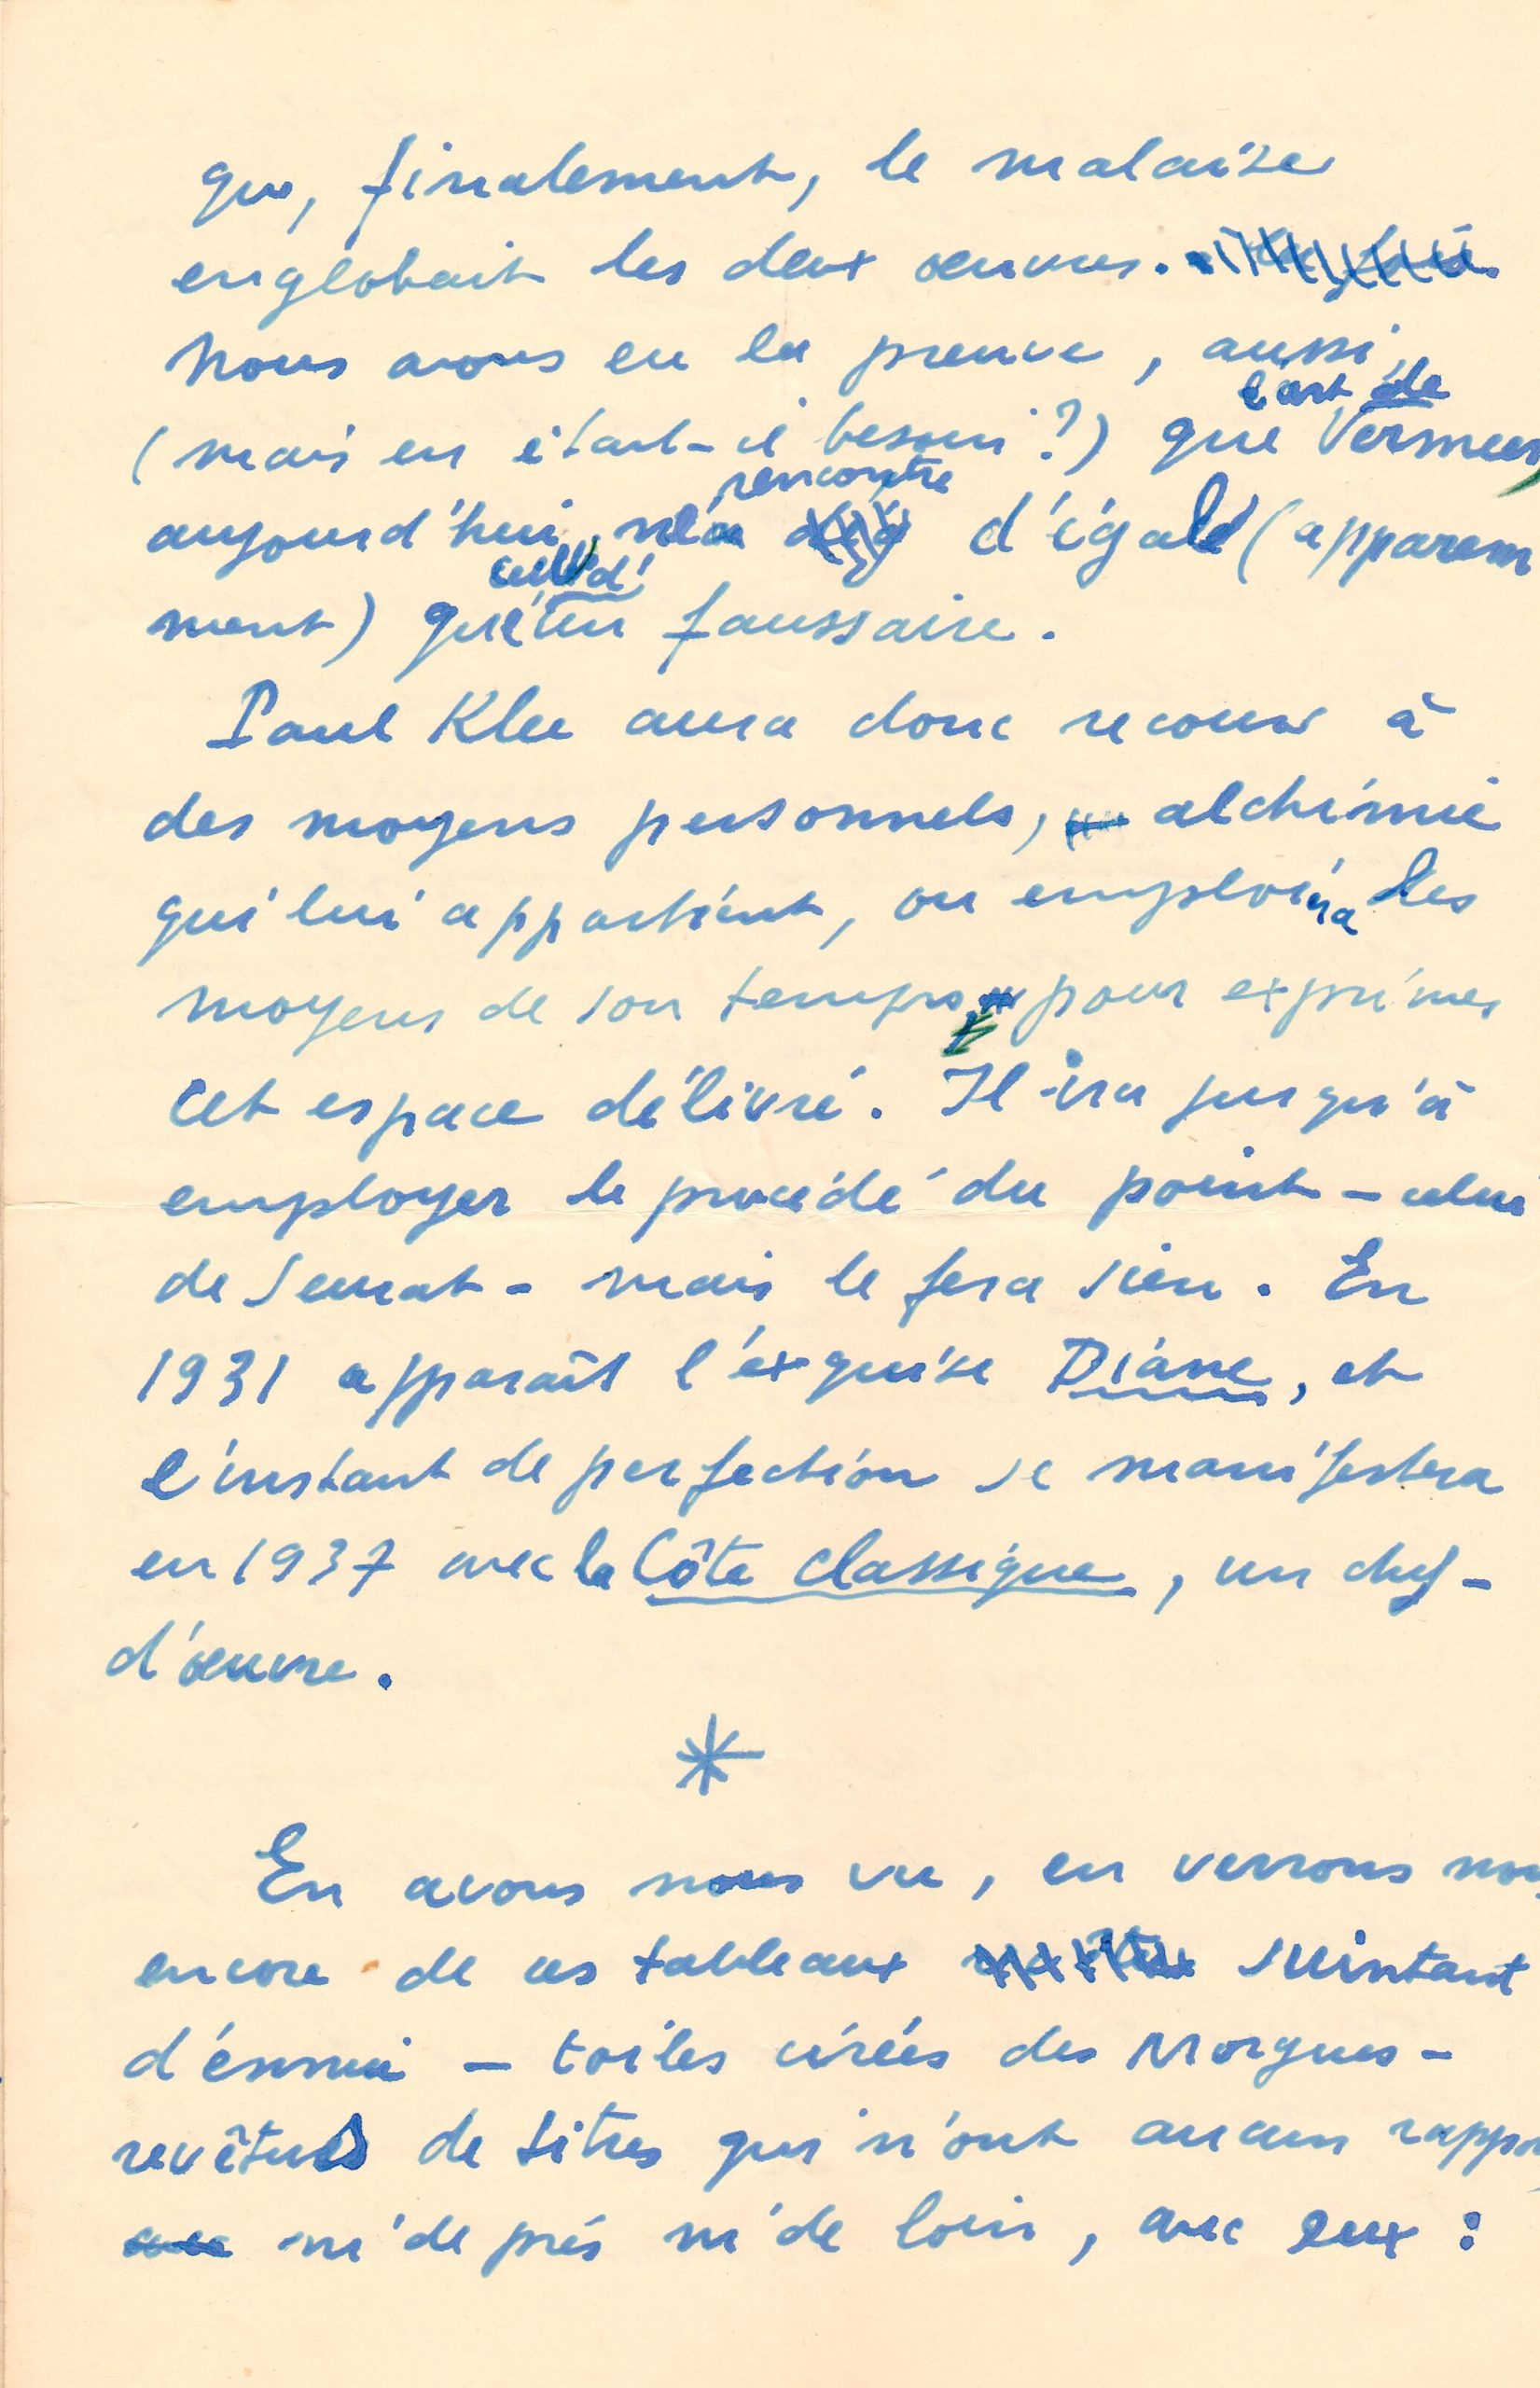 que, finalement, le malaise
englobait les deux œuvres.
Nous avons eu la preuve, aussi,
l'art de
(mais en était-il besoin ?) que Vermeer,
rencontre
aujourd'hui, n'a d'égal (apparem
celui d'
ment) qu'un faussaire.
Paul Klee aura donc recours à
des moyens personnels, alchimie
qui lui appartient, ou emploiera les
moyens de son temps pour exprimer
cet espace délivré. Il ira jusqu'à
employer le procédé du point - celui
de Seurat - mais le fera sien. En
1931 apparaît l'exquise Diane, et
l'instant de perfection se manifestera
en 1937 avec la Côte classique, un chef-
d'œuvre.
*
En avons nous vu, en verrons nou
encore de ces tableaux suintant
d'ennui - toiles cirées des Morgues -
revêtus de titres qui n'ont aucun rappor
ni de près ni de loin, avec eux :